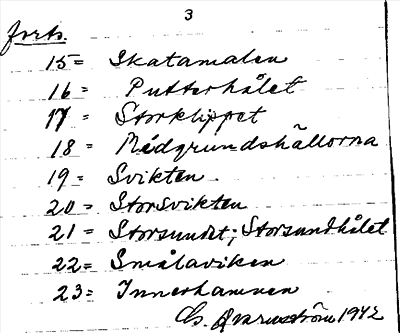 3
forts.
15 = Skatamalen
16 = Putterhålet
17 = Storklippet
18 = Rödgrundshällorna
19 = Svikten
20 = Storsvikten
21 = Storsundet; Storsundhålet
22 = Småläviken
23 = Innerhamnen
1942